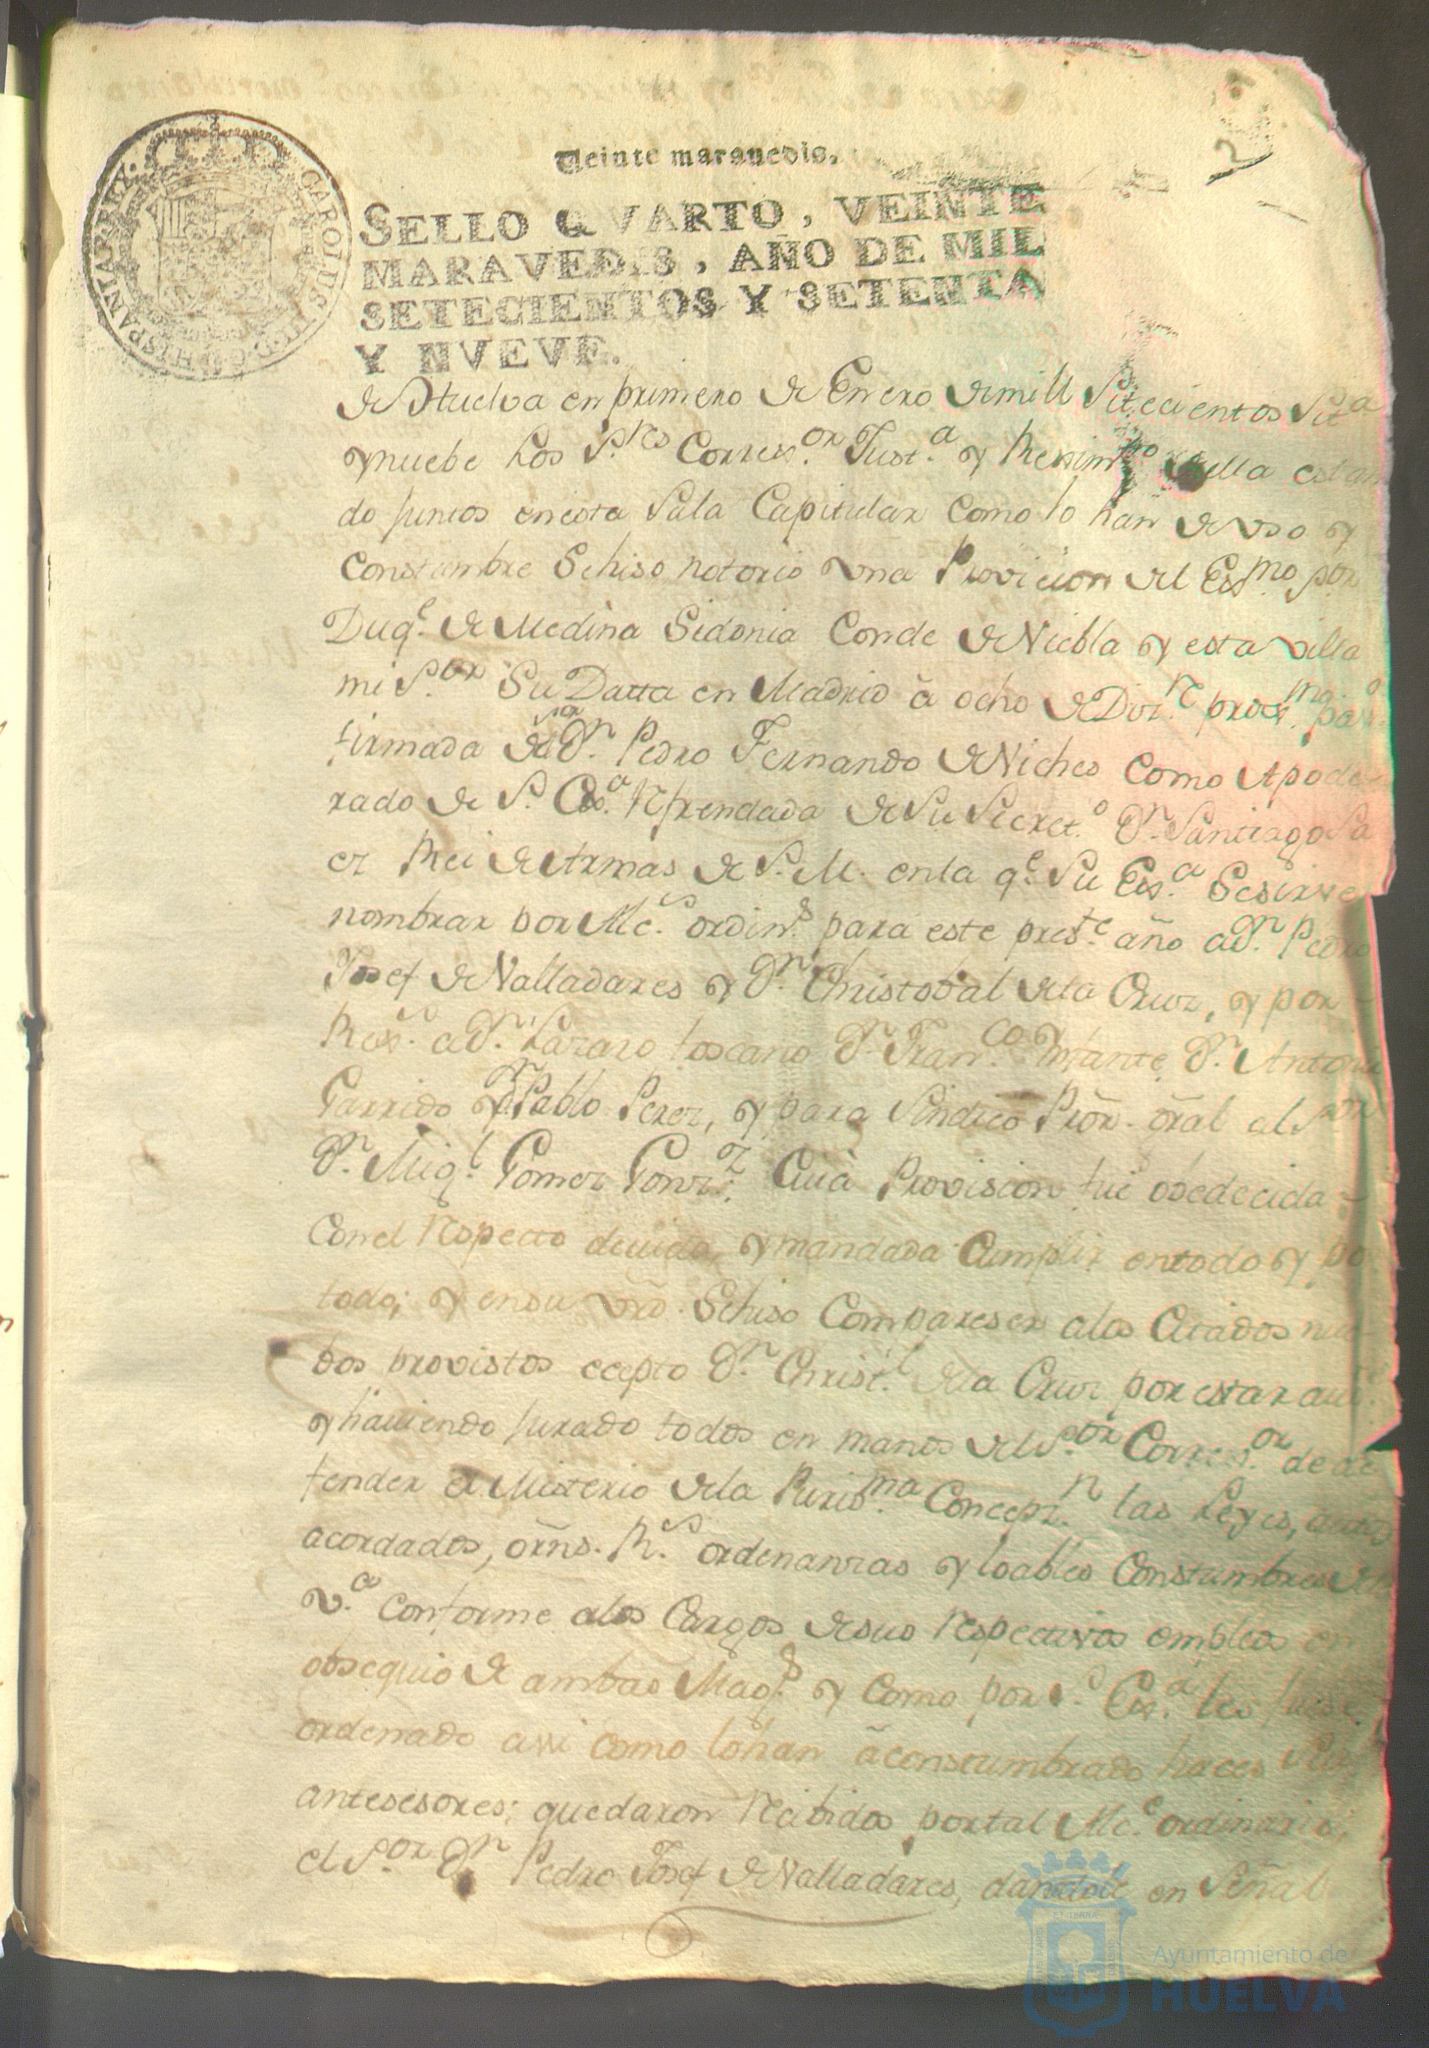 2
Veinte maravedis.
SELLO QVARTO, VEINTE
MARAVEDIS, AÑO DE MIL
SETECIENTOS Y SETENTA
Y NVEVE.
CAROLUS III D G HISPANIAR REX
de Huelva en primero de Enero de mill Setecientos Set.ª
y nuebe Los S.res Corres.or Just.ª y Regim.to de ella estan
do juntos en esta Sala Capitular como lo han de uso y
Constumbre Sehiso notorio una Provicion del Exmo. por
Duq.e de Medina Sidonia Conde de Niebla y esta villa
mi S.or Su Datta en Madrid â ocho de Diz.e proxmo. pasº
firmada del Sor D.n Pedro Fernando de Niches como Apode
rado de S. Exª. Refrendada de Su Secret.º D.n Santiago Sa
ez Rei de Armas de S. M. en la q.e Su Exª. Se sirve
nombrar por Alc.s ordin.s para este pres.te año a D.n Pedro
Josef de Valladares y D.n Christobal de la Cruz, y por
Rex.s a D.n Lazaro toscano D.n Fran.co Ynfante D.n Antonio
Garrido y D.n Pablo Perez, y para Sindico Prôr. gral al Sor
D.n Mig.l Gomez Gonz.z Cuia Provision fue obedecida
Con el Respecto devido, y mandada Cumplir en todo y po
todo; y en su vrd. Sehiso Compareser a los Citados nue
bos provistos ecepto D.n Christ.l de la Cruz por estar aus.e
y haviendo jurado todos en manos del S.or Corres.or de de
fender el Misterio de la Puris.ma Concepz.n las Leyes, autos
acordados, orns. R.s ordenanzas y loables Constumbres de
v.ª conforme a los Cargos de sus Respectivos empleos en
obsequio de ambas Mag.s y como por S. Exª. les fuese
ordenado assi como lo han âconstumbrado haces Sus
antesesores; quedaron Recibidos por tal Alc.e ordinario,
el S.or D.n Pedro Josef de Valladares, dandole en Señal
Ayuntamiento de
HUELVA